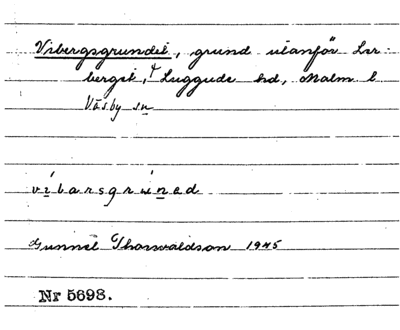 Vibergsgrundet, grund utanför Ler-
berget, † Luggude hd, Malm l
Väsby sn
vìbarsgrùned
Gunnel Thorwaldson 1945
Nr 5698.